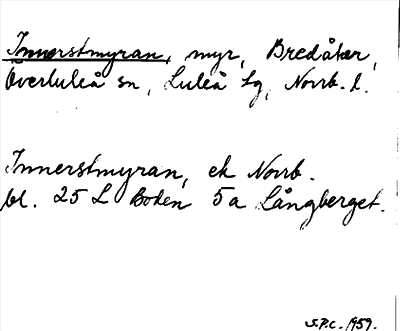 Innerstmyran, myr, Bredåker,
Överluleå sn, Luleå tg, Norrb. l.
Innerstmyran, ek Norrb.
bl. 25 L Boden 5a Långberget.
S.P.C. 1959.